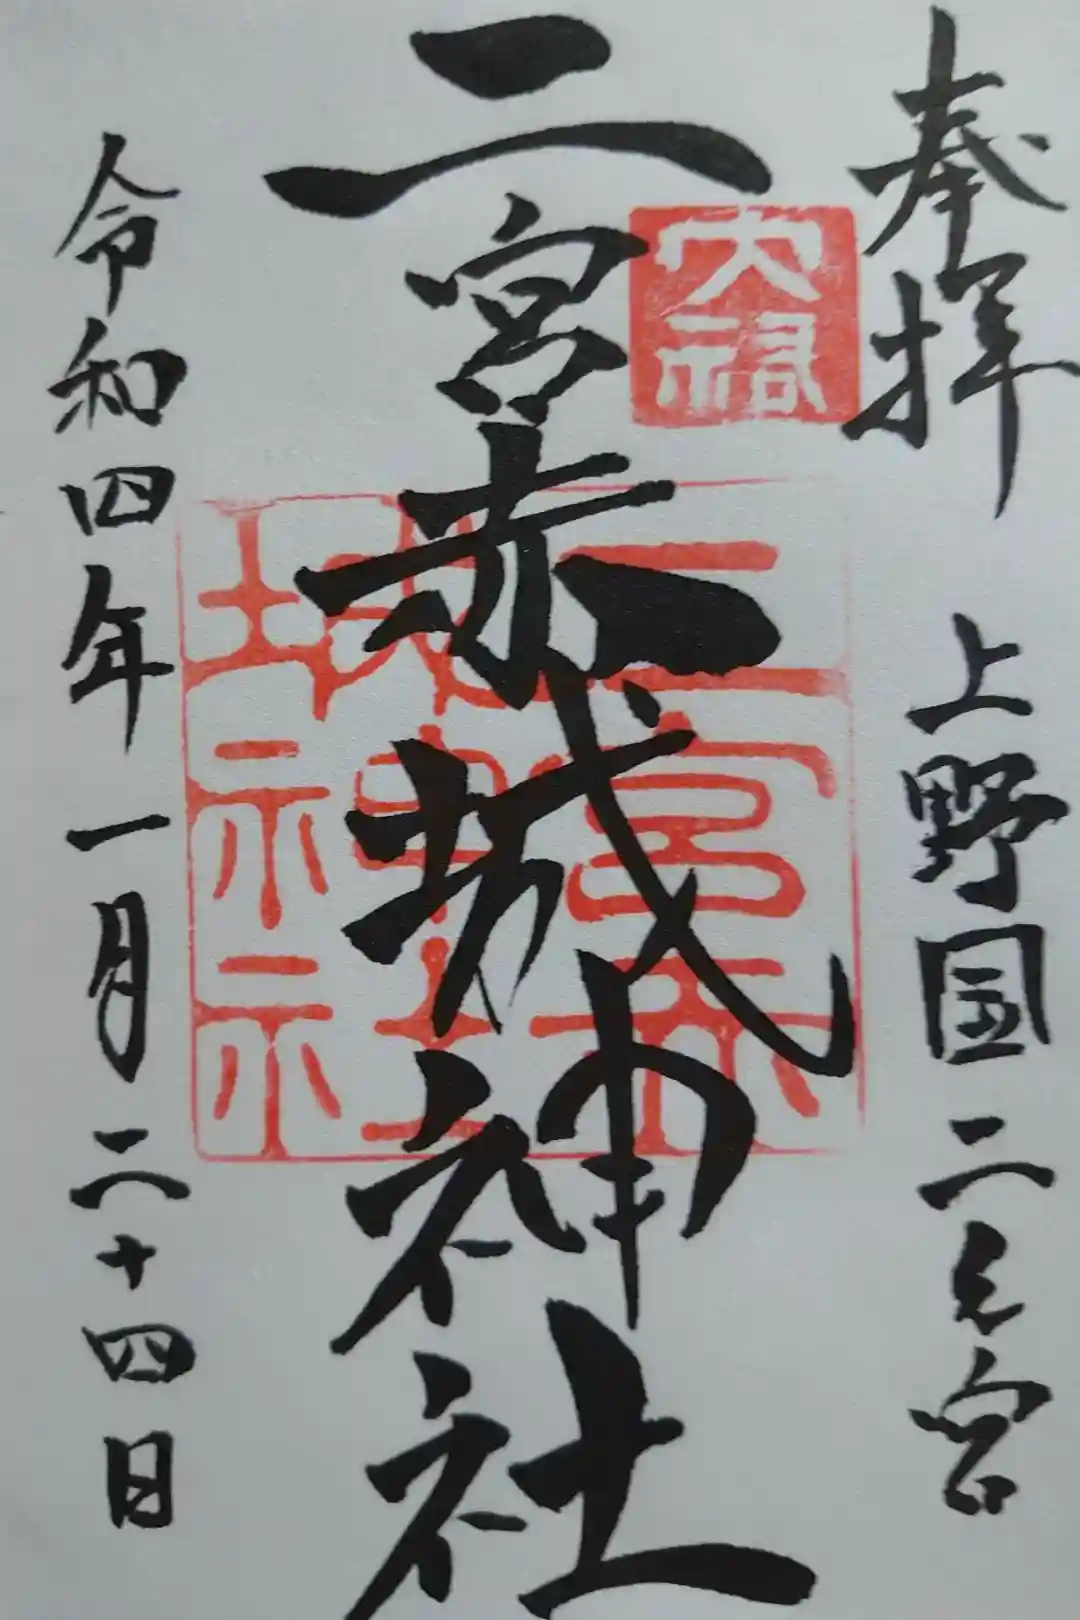 奉拝　上野国二之宮
二宮赤城神社
二宮赤
城神社
令和四年一月二十四日